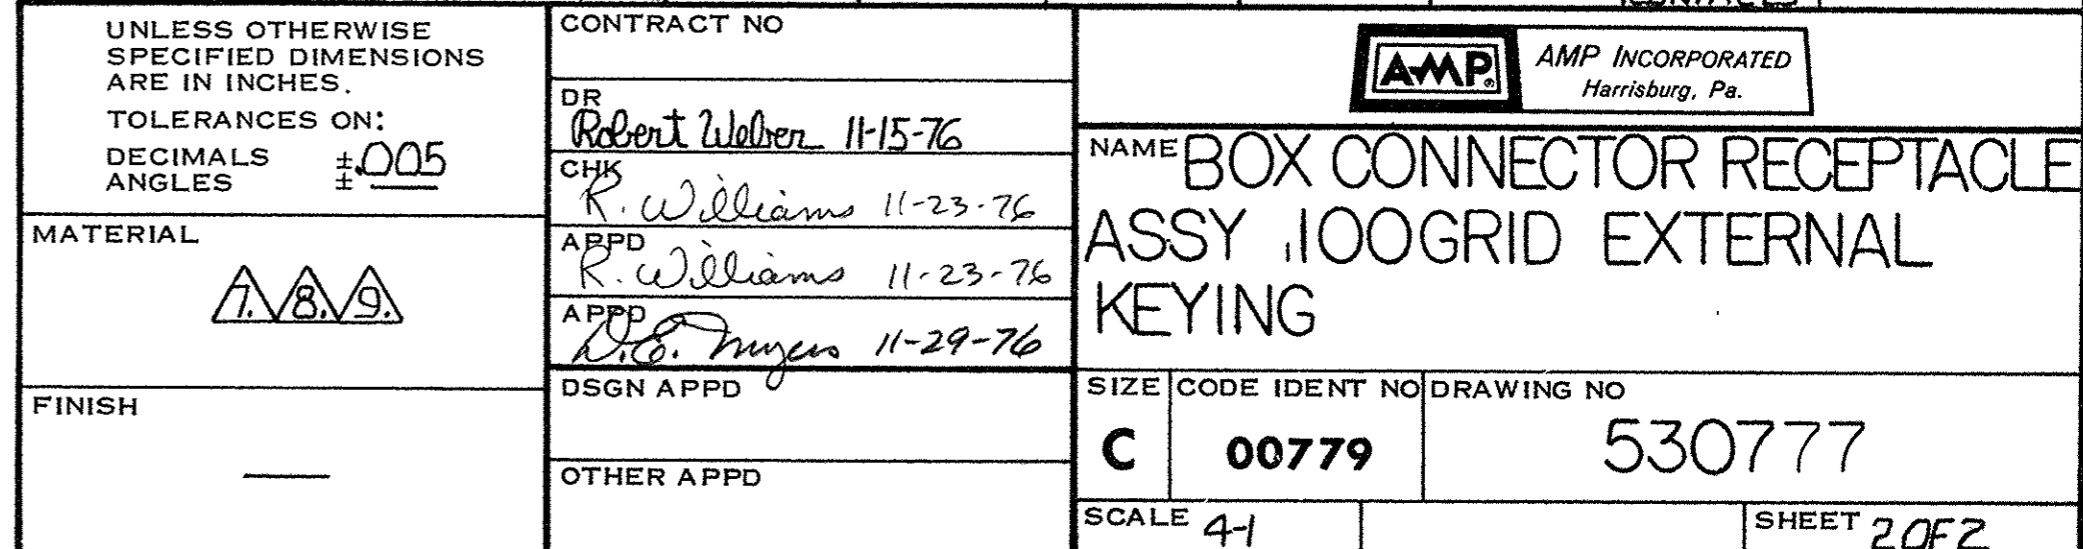 UNLESS OTHERWISE
SPECIFIED DIMENSIONS
ARE IN INCHES.
TOLERANCES ON:
DECIMALS ±.005
ANGLES ± —
MATERIAL
7. 8. 9.
FINISH
—
CONTRACT NO
DR
Robert Weber 11-15-76
CHK
R. Williams 11-23-76
APPD
R. Williams 11-23-76
APPD
D.E. Myers 11-29-76
DSGN APPD
OTHER APPD
AMP® AMP INCORPORATED
Harrisburg, Pa.
NAME BOX CONNECTOR RECEPTACLE
ASSY .100GRID EXTERNAL
KEYING
SIZE CODE IDENT NO DRAWING NO
C 00779 530777
SCALE 4-1 SHEET 2 OF 2